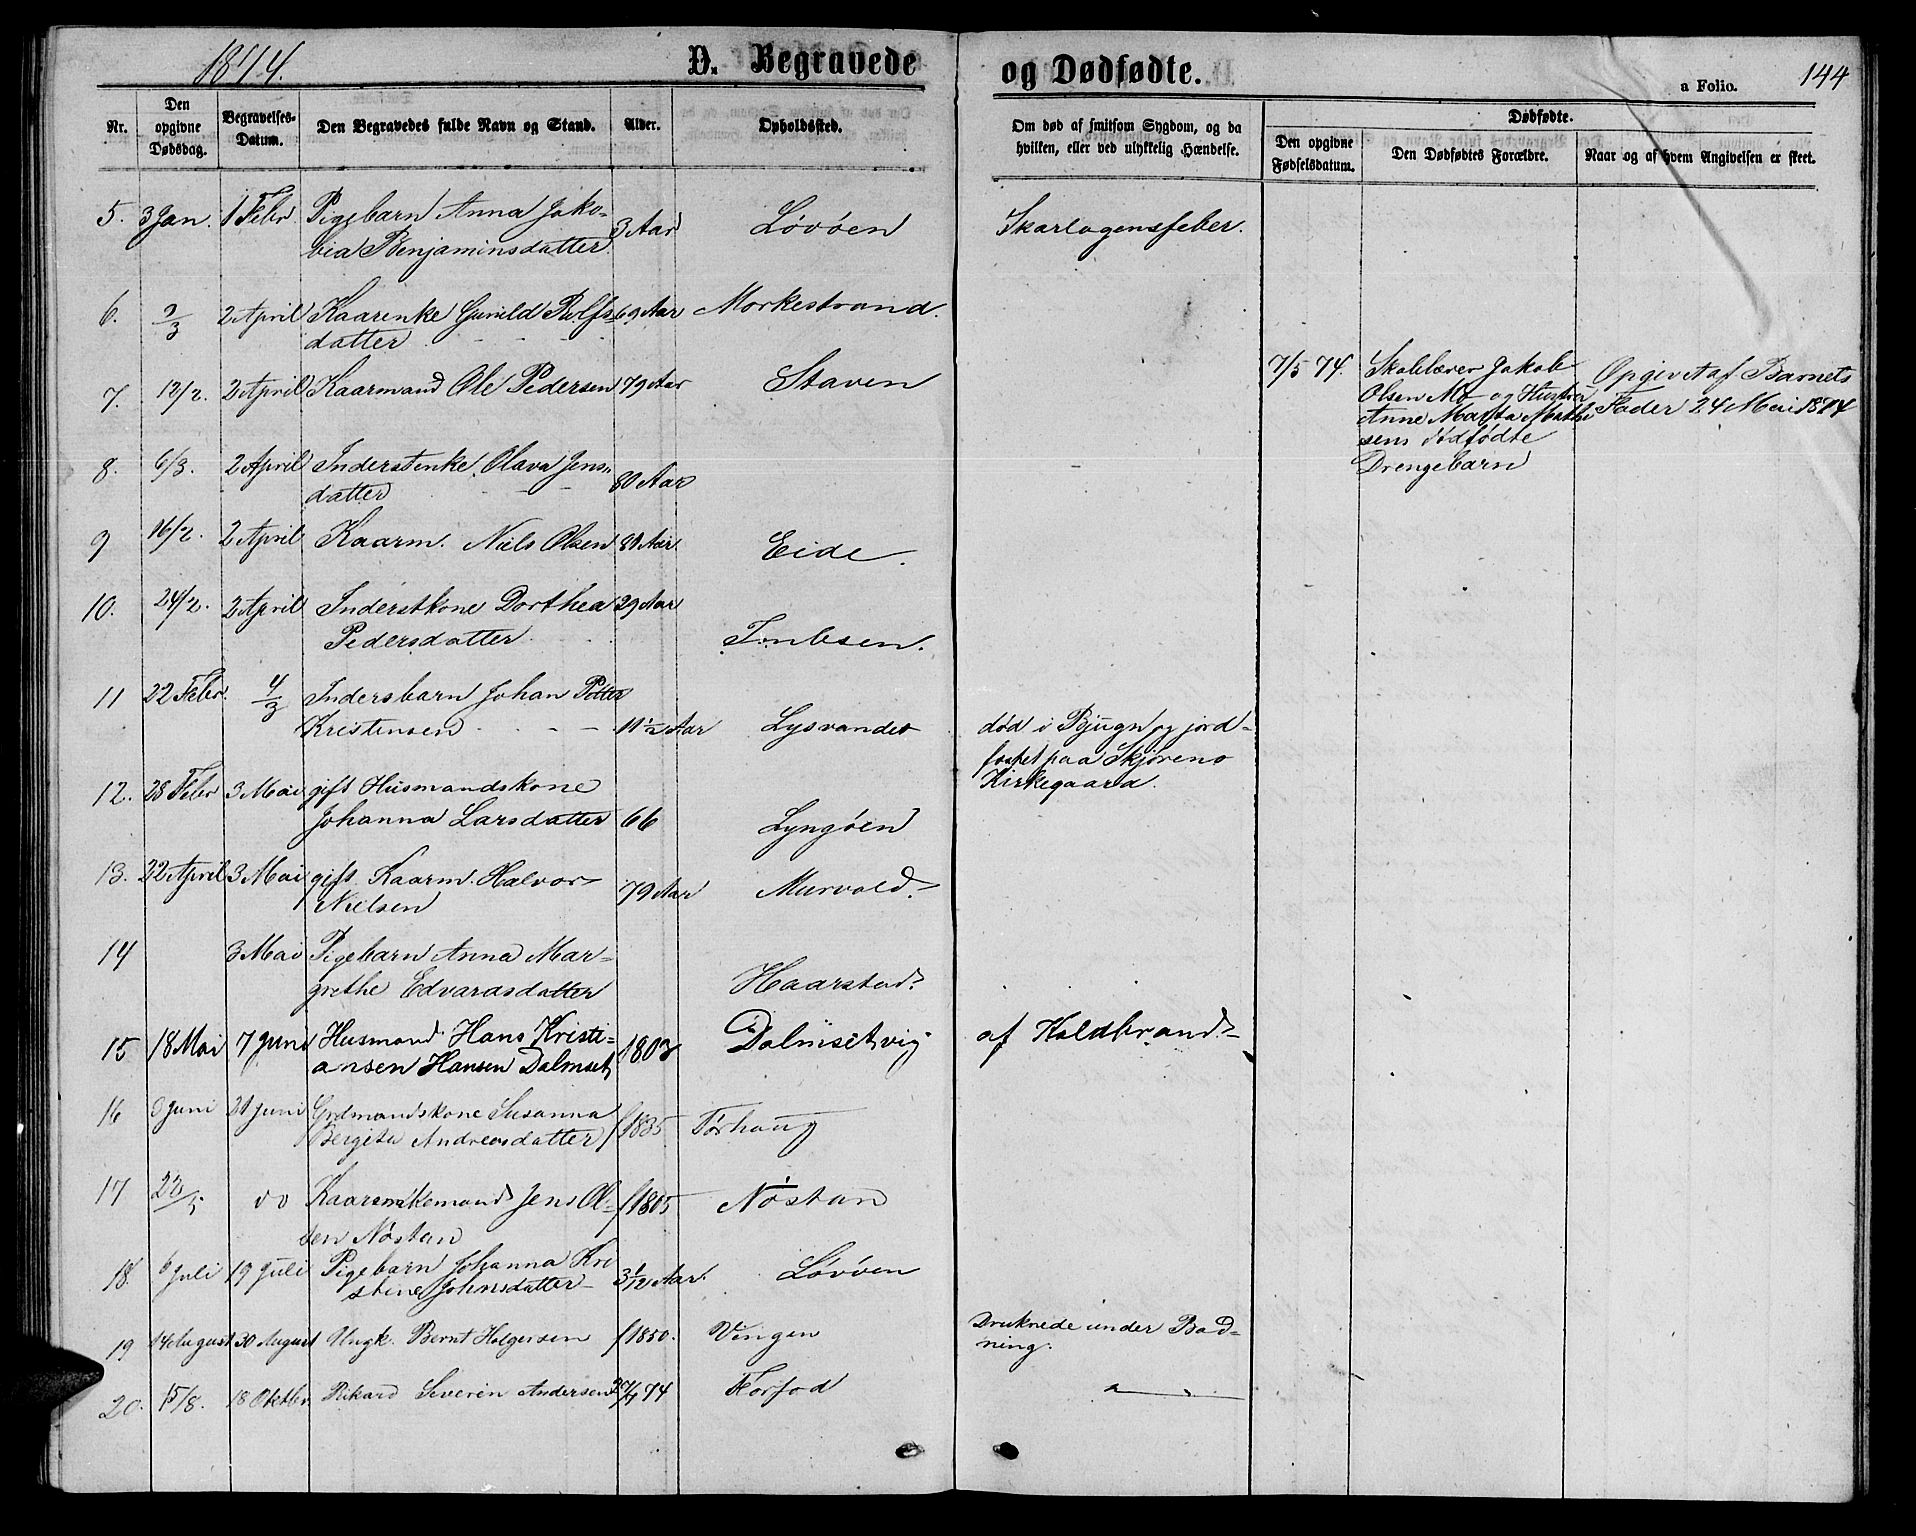 1874.
D. Begravede
og Dødfødte.
a Folio.
144
Nr.
Den opgivne Dødsdag.
Begravelses-Datum.
Den Begravedes fulde Navn og Stand.
Alder.
Opholdssted.
Om død af smitsom Sygdom, og da hvilken, eller ved ulykkelig Hændelse.
Dødfødte.
Den opgivne Fødselsdatum.
Den Dødfødtes Forældre.
Naar og af hvem Angivelsen er skeet.
5. 3 Jan. 1 Febr. Pigebarn Anna Jako-
bia Benjaminsdatter. 3 Aar Løvøen Skarlagensfeber.
6. 9/3 2 April Kaarenke Gunild Rolfs-
datter 69 Aar Morkestrand.
7. 12/2. 2 April Kaarmand Ole Pedersen 79 Aar Staven
7/5 74. Skolelærer Jakob
Olsen Mo og Hustru
Anne Marta Mathi
sens dødfødte
Drengebarn
Opgivet af Barnets
Fader 24 Mai 1874
8. 6/3. 2 April Inderstenke Olava Jens-
datter 80 Aar
9 16/2. 2 April Kaarm. Niels Olsen 80 Aar. Eide.
10. 24/2. 2 April Inderstkone Dorthea 29 Aar
Pedersdatter
11 22 Febr. 4/3 Indersbarn Johan Petter
Kristensen 11 1/2 Aar Lysvandet død i Bjugn og jord-
fæstet paa Skjørens
Kirkegaard.
12. 28 Febr 3 Mai gift Husmandskone
Johanna Larsdatter 66 Lyngøen
13. 22 April 3 Mai gift Kaarm. Halvor
Nielsen 79 Aar Murvold.
14 3 Mai Pigebarn Anna Mar-
grethe Edvardsdatter Haarstad.
15 18 Mai 7 Juni Husmand Hans Kristi-
ansen Hansen Dalmset, 1803 Dalmsetvig af Koldbrand
16 21 Juni Grdmandskone Susanna
Bergita Andreasdatter f 1835 Tørhaug
17 do Kaarenkemand Jens Ol-
sen Nøstan f 1805 Nøstan
18. 6 Juli 19 Juli Pigebarn Johanna Kri
stine Johnsdatter 3 1/12 Aar. Løvøen
19 14 August 30 August Ungk. Bernt Holgersen f 1850. Vingen Druknede under Bad-
ning.
20. 15/8. 18 Oktbr. Rikard Severin Andersen 74 Forfod